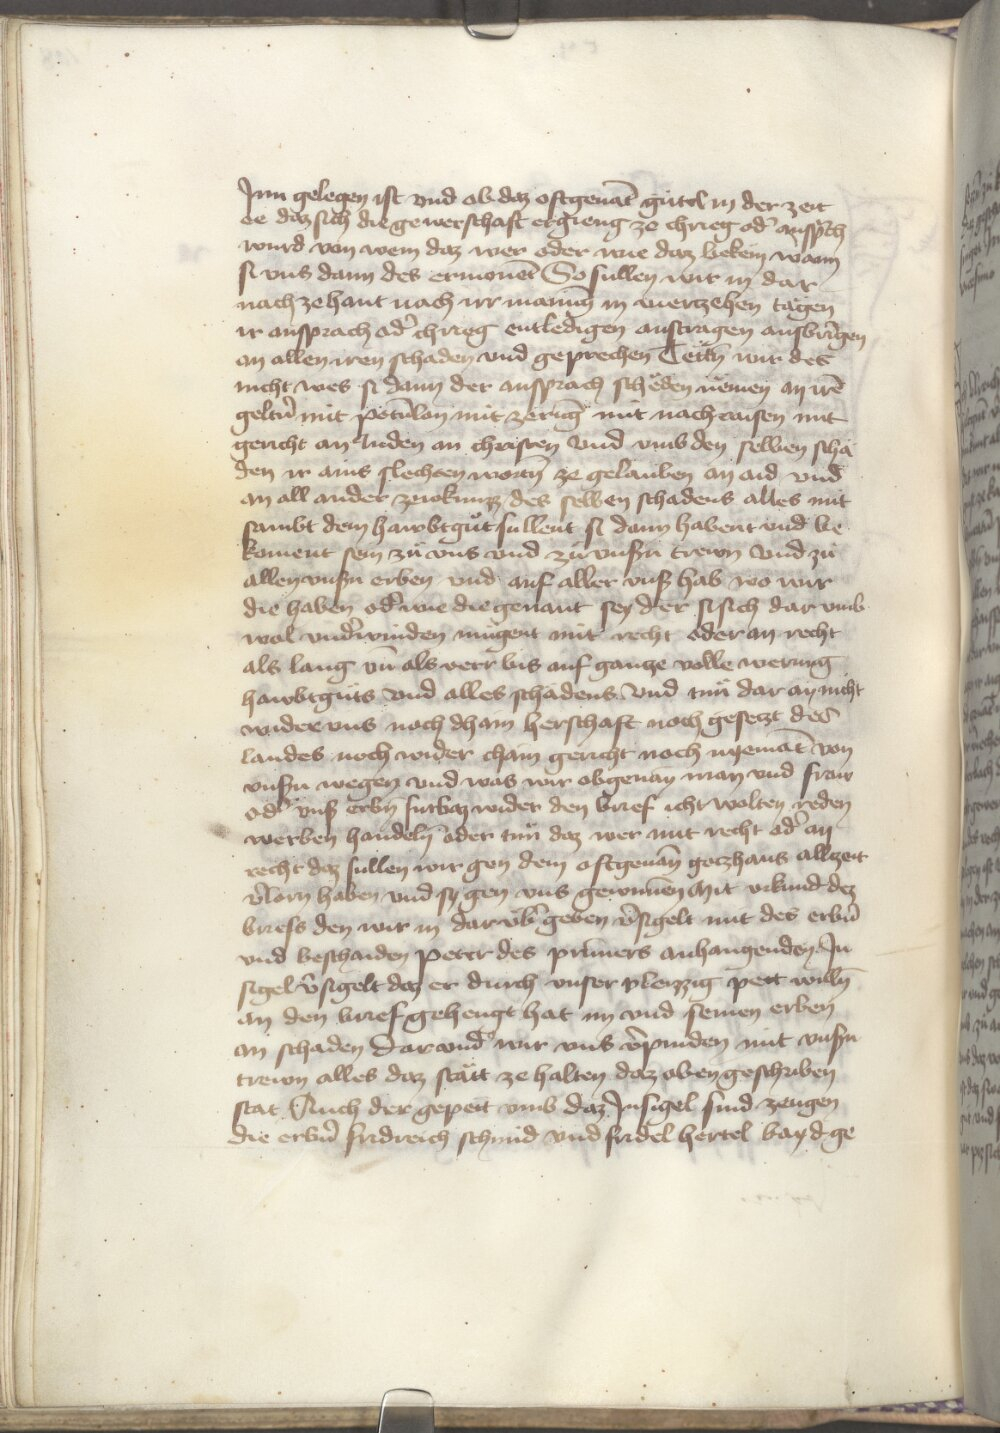 Inn gelegen ist vnd ob daz oftgenāt gütel in der zeit
ee daz sich die gewerschaft ergieng ze chrieg od͛ ansp͛ch
wurd von wem daz wer oder wie daz bekem wann
si vns dann des ermonēt So sullen wir in dar
nach ze hant nach irr manūg in viertzehen tagen
ir ansprach od͛ chrieg entledigen austragen ausbringen
an allen iren schaden vnd geprechen Tettn̄ wir des
nicht wes si dann der ansprach scheden nëmen an irē
geltn̄ mit potnlon mit zerūg mit nachraisen mit
gericht an Juden an christen vnd vmb den selben scha
den ir ains slechten wortn̄ ze gelauben an aid vnd
an all ander zwkunzz des selben schadens alles mit
sambt dem hawbtgůt sullent si dann habent vnd be
koment sein zů vns vnd zů vnsn̄ trewn vnd zů
allen vnsn̄ erben vnd auf aller vnsr̄ hab wo wir
die haben od͛ wie die genant sey der si sich dar vmb
wol vnd͛winden mügent mit recht oder an recht
als lang vn̄ als verr bis auf gantze volle werung
hawbtguts vnd alles schadens vnd tun dar an nicht
wider vns noch dhain herschaft noch gesetzt des
landes noch wider chain gericht noch nyemāt von
vnsn̄ wegen vnd was wir obgenan man vnd fraw
od͛ vnsr̄ erbn̄ furbaz wider den brief icht wolten reden
werben handeln̄ oder tun daz wer mit recht od͛ an
recht daz sullen wir gen dem oftgenan̄ goczhaus allzeit
v͛lorn haben vnd sy gen vns gewunnen Mit vrkund dez
briefs den wir in dar vb͛ geben v͛sigelt mit des erbn̄
vnd beschaiden Peter des primers anhangenden In
sigel v͛sigelt daz er durch vnser vleizzig pett willn̄
an den brief gehengt hat im vnd seinen erben
an schaden Darund͛ wir vns v͛pinden mit vnsn̄
trewn alles daz stätt ze halten daz oben geschriben
stat Auch der gepett vmb daz Insigel sind zeugen
die erbn̄ fridreich schmid vnd fridel hertel bayd ge